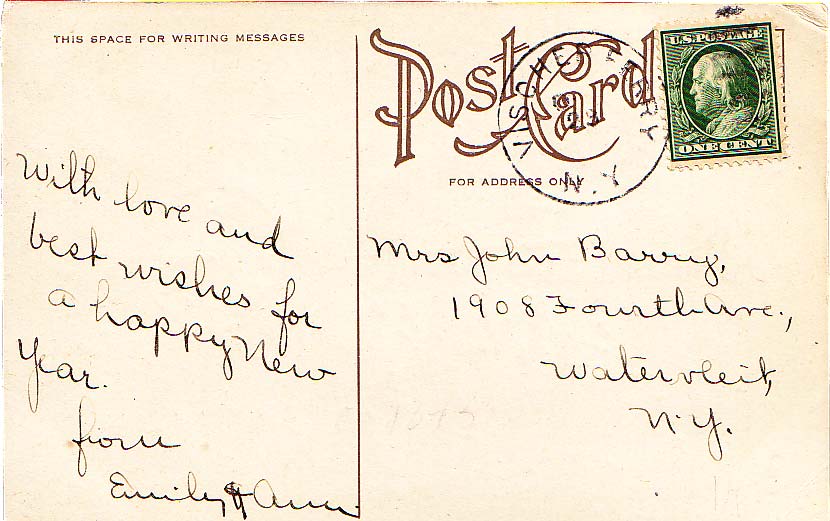 THIS SPACE FOR WRITING MESSAGES
With love and
best wishes for
a happy New
Year.
from
Emily & Ann.
Post Card
FOR ADDRESS ONLY
VISCHER FERRY
N.Y.
U.S. POSTAGE
ONE CENT
Mrs John Barry,
1908 Fourth Ave.,
Watervleit,
N.Y.